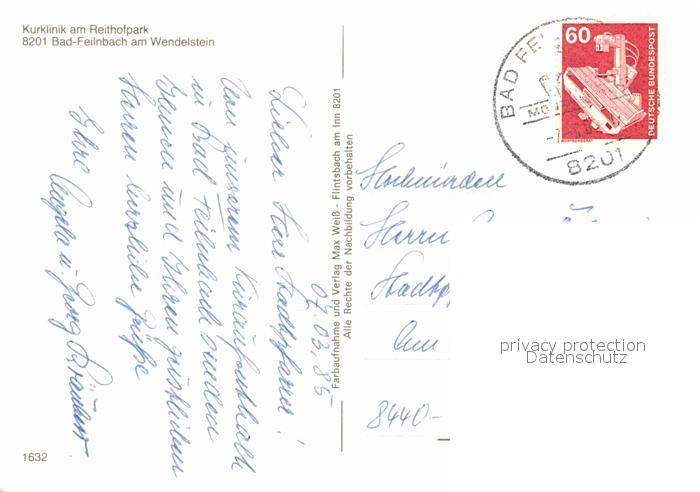 Kurklinik am Reithofpark
8201 Bad-Feilnbach am Wendelstein
07.03.85
Lieber Herr Stadtpfarrer!
Von unserem Kuraufenthalt
in Bad Feilnbach senden
Ihnen und Ihren geistlichen
Herren herzliche Grüße
Ihre
Angela u. Georg
1632
Farbaufnahme und Verlag Max Weiß - Flintsbach am Inn 8201
Alle Rechte der Nachbildung vorbehalten
60
DEUTSCHE BUNDESPOST
BAD FEI
8201
Hochwürden
Herrn
Stadtp
8440-
privacy protection
Datenschutz